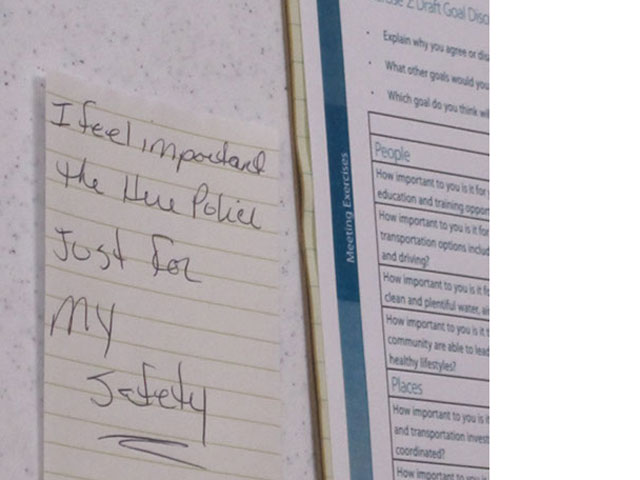 I feel important
the Here Police
Just for
My
Safety
2 Draft Goal Disc
Explain why you agree or dis
What other goals would you
Which goal do you think wil
Meeting Exercises
People
How important to you is it for
education and training opport
How important to you is it for
transportation options includ
and driving?
How important to you is it fo
clean and plentiful water, ai
How important to you is it t
community are able to lead
healthy lifestyles?
Places
How important to you is it
and transportation invest
coordinated?
How important to you is it